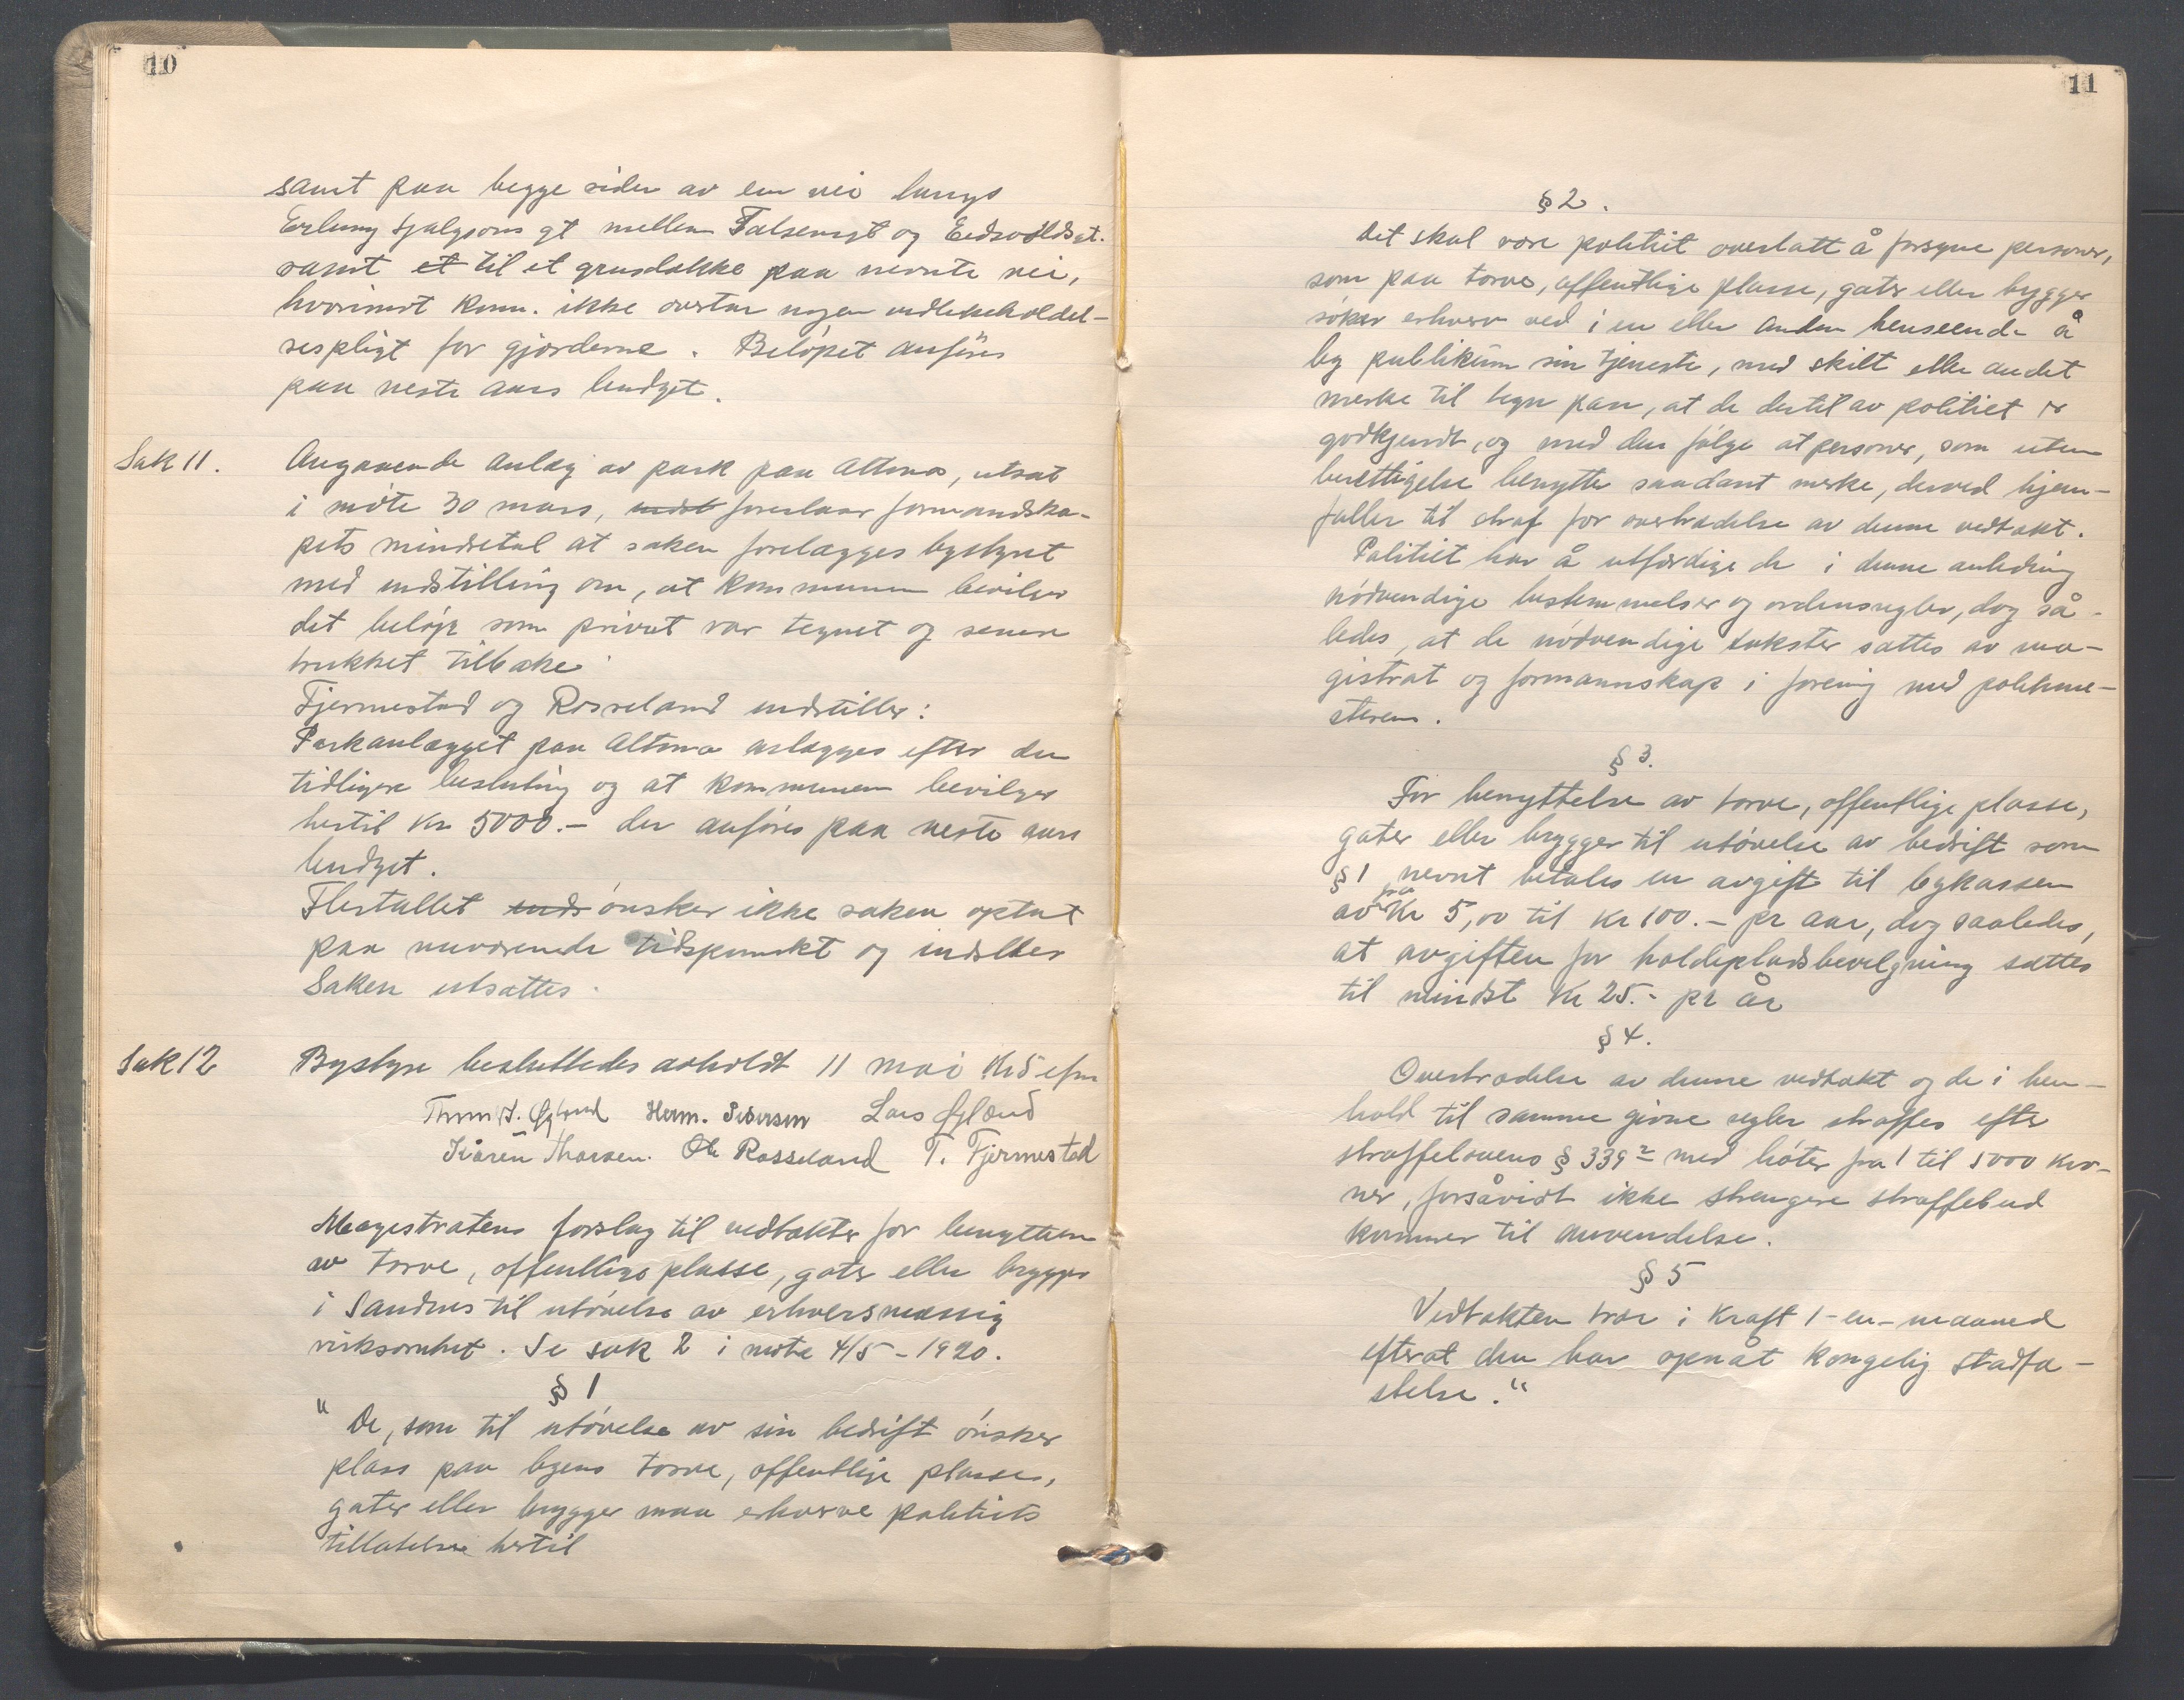 10
samt paa begge sider av en vei langs
Erling Skjalgsons gt mellem Falsensgt og Eidsvoldsgt.
samt et til et grusdække paa nevnte vei,
hvorimot kom. ikke overtar nogen vedlikeholdel-
sespligt for gjærderne. Beløpet anføres
paa neste aars budget.
Sak 11. Angaaende anlæg av park paa Altona, utsat
i møte 30 mars, indst foreslaar formandska-
pets mindretal at saken forelægges bystyret
med indstilling om, at kommunen bevilger
det beløp som privat var tegnet og senere
trukket tilbake.
Fjermestad og Rosseland indstiller:
Parkanlægget paa Altona anlægges efter den
tidligere beslutning og at kommunen bevilger
hertil Kr 5000.- der anføres paa neste aars
budget.
Flertallet inds ønsker ikke saken optat
paa nuværende tidspunkt og indstiller
Saken utsættes.
Sak 12 Bystyre besluttedes avholdt 11 mai Kl 5 efm
Herm. Pedersen Lars Øgland
Kåren Thorsen. Ole Rosseland T. Fjermestad
Magistratens forslag til vedtækter for benyttelsen
av torve, offentlige plasse, gater eller brygger
i Sandnes til utøvelse av erhversmæssig
virksomhet. Se sak 2 i møte 4/5 - 1920.
§ 1
" De, som til utøvelse av sin bedrift ønsker
plass paa byens torve, offentlige plasser,
gater eller brygger maa erhverve politiets
tillatelse hertil
11
§ 2.
Det skal være politiet overlatt å forsyne personer,
som paa torve, offentlige plasse, gater eller brygger
søker erhverv ved i en eller anden henseende å
by publikum sin tjeneste, med skilt eller andet
merke til tegn paa, at de dertil av politiet er
godkjendt, og med den følge at personer, som uten
berettigelse benytter saadant merke, derved hjem-
faller til straf for overtrædelse av denne vedtækt.
Politiet har å utfærdige de i denne anledning
nødvendige bestemmelser og ordensregler, dog så-
ledes, at de nødvendige takster sættes av ma-
gistrat og formannskap i forening med politime-
steren.
§ 3.
For benyttelse av torve, offentlige plasse,
gater eller brygger til utøvelse av bedrift som
§ 1 nevnt betales en avgift til bykassen
av fra Kr 5,00 til Kr 100.- pr aar, dog saaledes,
at avgiften for holdepladsbevilgning sættes
til mindst Kr 25.- pr år
§ 4.
Overtrædelse av denne vedtækt og de i hen-
hold til samme givne regler straffes efter
straffelovens § 339 2 med bøter fra 1 til 5000 kro-
ner, forsåvidt ikke strengere straffebud
kommer til anvendelse.
§ 5
Vedtækten trær i kraft 1 - en - maaned
efterat den har opnåt kongelig stadfæ-
stelse."